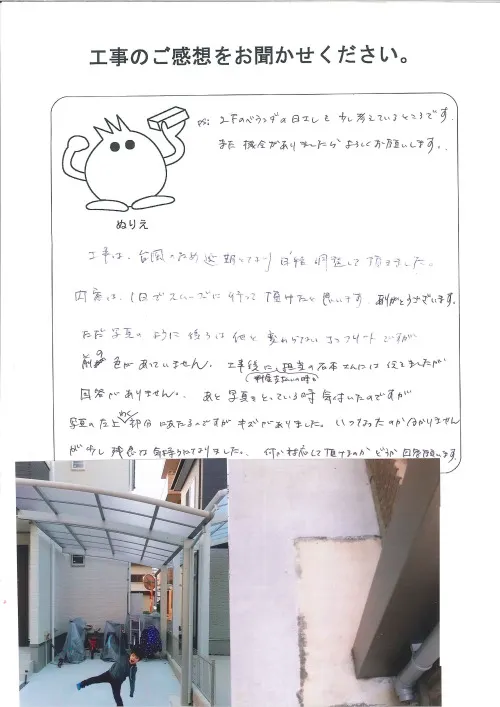 工事のご感想をお聞かせください。
P.S. 2Fのベランダの目かくしも少し考えているところです。
また機会がありましたらよろしくお願いします。
ぬりえ
工事は、台風のため延期になり日程調整して頂きました。
内容は、1日でスムーズに行って頂けたと思います。ありがとうございます。
ただ写真のように後ろは他と変わらないコンクリートですが
前の色があっていません。工事後に、担当の石本さんには伝えましたが
(残金支払いの時)
回答がありません。あと写真をとっている時気付いたのですが
写真の左上わく部分にあたるのですがキズがありました。いつなったのか分かりません
が少し残念な気持ちになりました。何か対応して頂けるのかどうか回答願います。